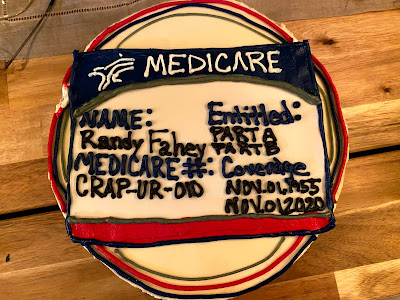 MEDICARE
NAME: Entitled:
Randy Fahey PART A
PART B
MEDICARE #: Coverage
CRAP-UR-OLD NOV.01,1955
NOV.01,2020